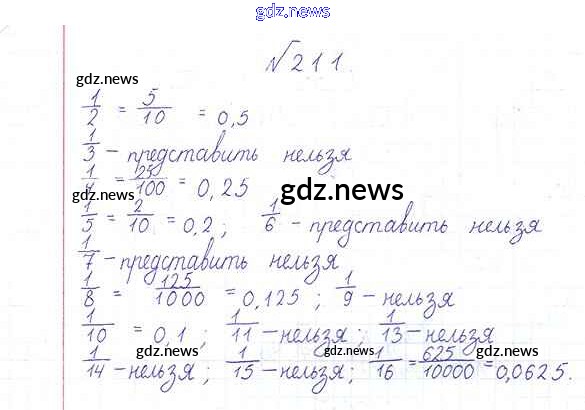 gdz.news
№211.
gdz.news
1/2 = 5/10 = 0,5
1/3 - представить нельзя
1/4 = 25/100 = 0,25
gdz.news
gdz.news
1/5 = 2/10 = 0,2; 1/6 - представить нельзя
1/7 - представить нельзя
1/8 = 125/1000 = 0,125; 1/9 - нельзя
1/10 = 0,1; 1/11 - нельзя; 1/13 - нельзя
gdz.news
gdz.news
gdz.news
1/14 - нельзя; 1/15 - нельзя; 1/16 = 625/10000 = 0,0625.